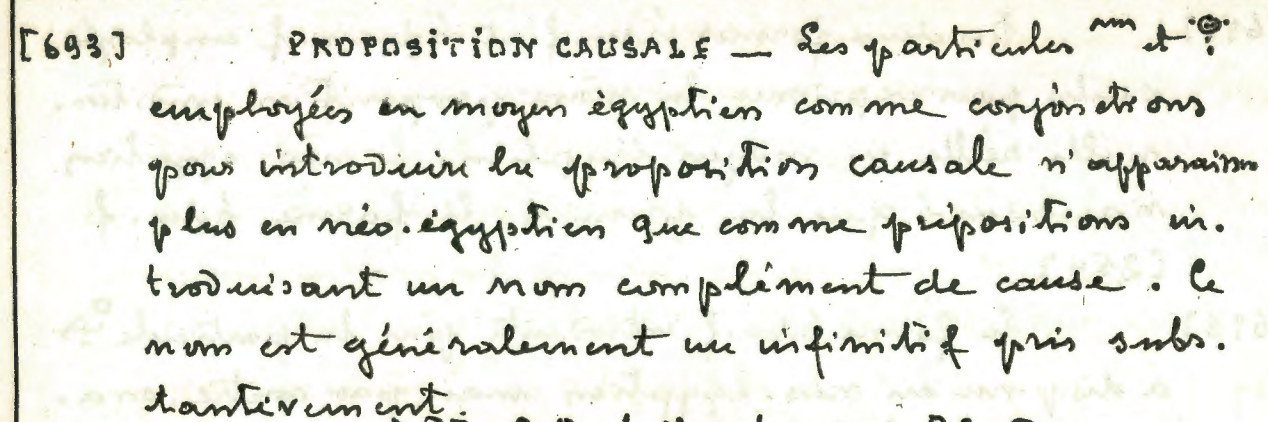 [693] PROPOSITION CAUSALE — Les particules 𓈖 et 𓁷
employées en moyen égyptien comme conjonctions
pour introduire la proposition causale n'apparaissent
plus en néo-égyptien que comme prépositions in-
troduisant un nom complément de cause. Ce
nom est généralement un infinitif pris subs-
tantivement.